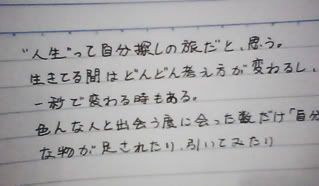 "人生"って自分探しの旅だと、思う。
生きてる間はどんどん考え方が変わるし、
一秒で変わる時もある。
色んな人と出会う度に会った数だけ「自分
な物が足されたり、引いてみたり